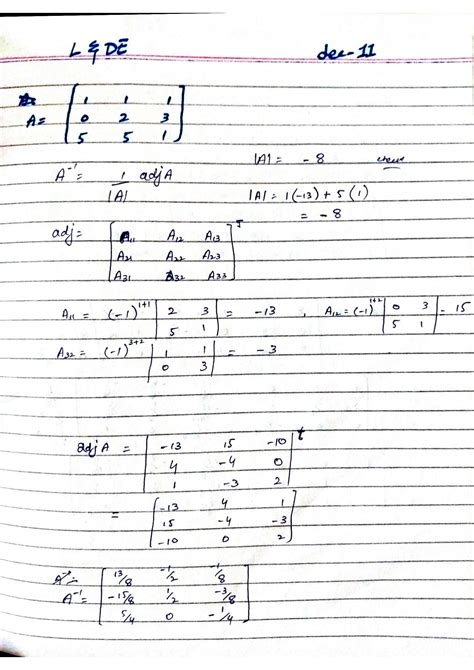 L & DE dec-11
A= [ 1 1 1
0 2 3
5 5 1 ]
A⁻¹ = 1/|A| adj A
|A| = -8
|A| = 1(-13) + 5(1)
= -8
adj = [ A₁₁ A₁₂ A₁₃
A₂₁ A₂₂ A₂₃
A₃₁ A₃₂ A₃₃ ]ᵀ
A₁₁ = (-1)¹⁺¹ | 2 3 | = -13 , A₁₂ = (-1)¹⁺² | 0 3 | = 15
5 1 5 1
A₃₂ = (-1)³⁺² | 1 1 | = -3
0 3
adj A = | -13 15 -10 |ᵗ
4 -4 0
1 -3 2
= [ -13 4 1
15 -4 -3
-10 0 2 ]
A⁻¹ = [ 13/8 -1/2 -1/8
-15/8 1/2 -3/8
5/4 0 -1/4 ]